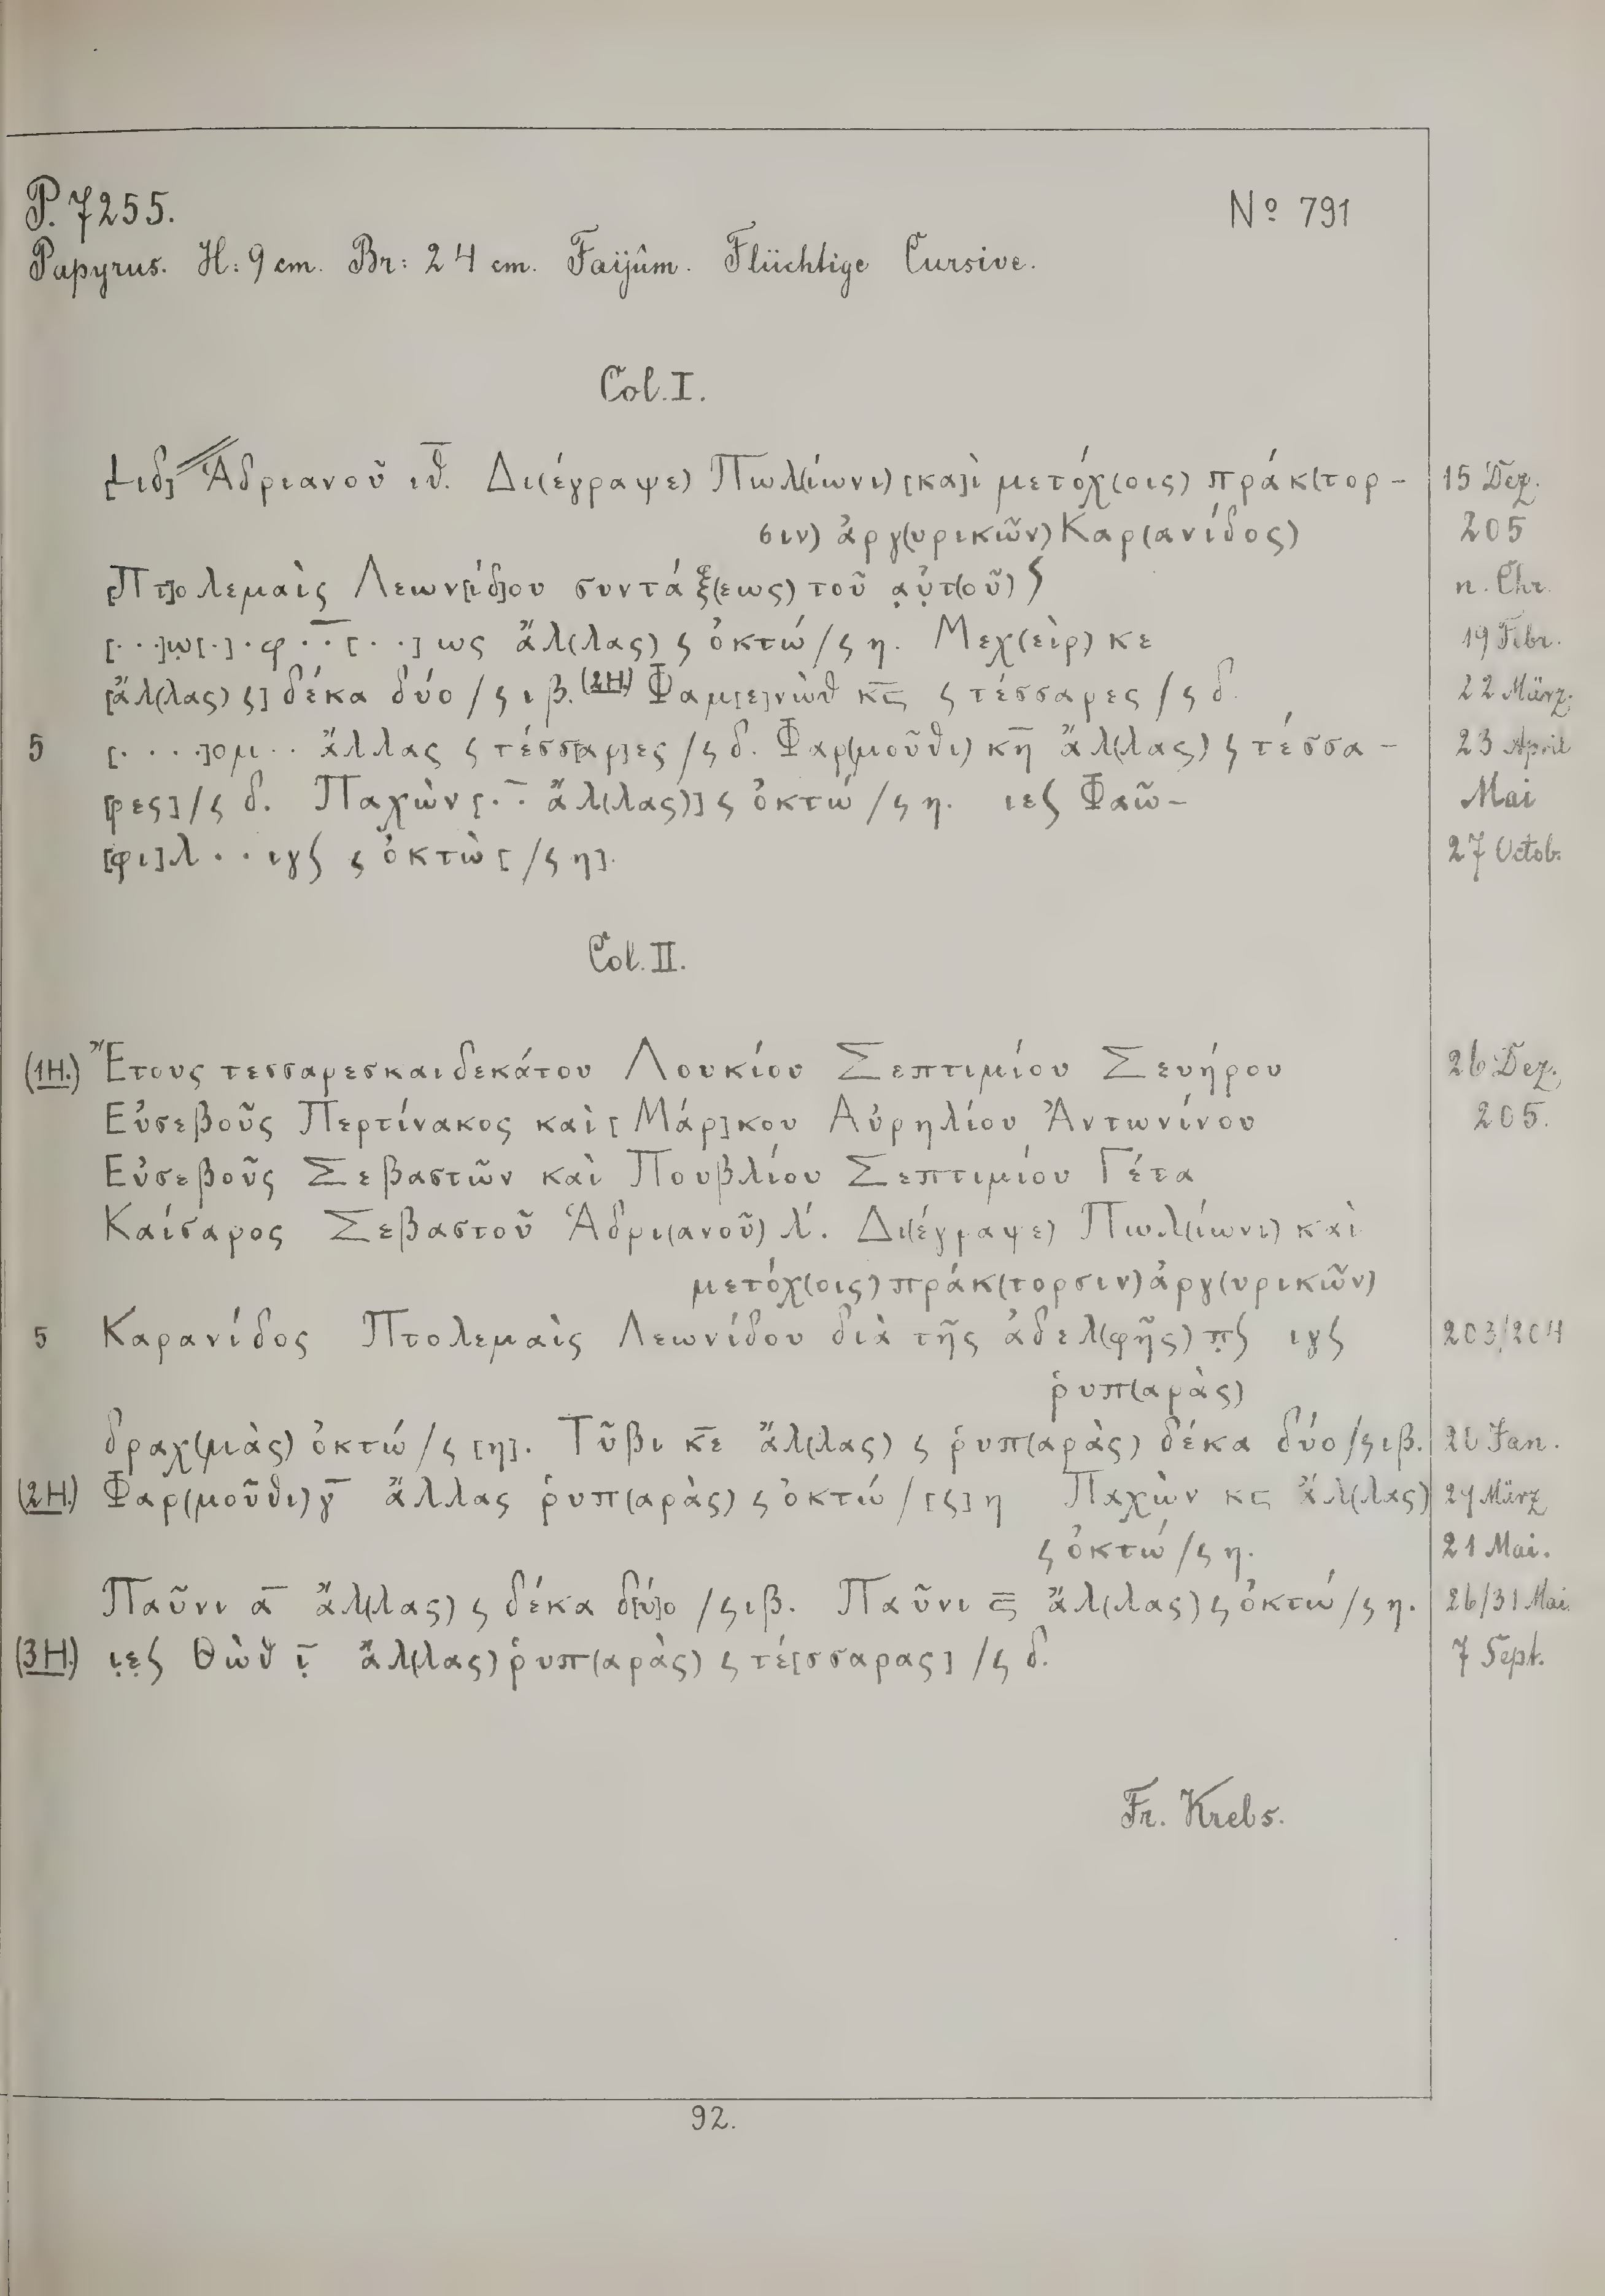 P. 7255.
Nº 791
Papyrus. H: 9 cm. Br: 24 cm. Faijûm. Flüchtige Cursive.
Col. I.
[Lιδ] Ἁδριανοῦ ιθ̅. Δι(έγραψε) Πωλ(ίωνι) [κα]ὶ μετόχ(οις) πράκ(τορ- 15 Dez.
σιν) ἀργ(υρικῶν) Καρ(ανίδος) 205
[Πτ]ολεμαὶς Λεων[ίδ]ου συντάξ(εως) τοῦ α̣ὐ̣τ(οῦ) ϛ n. Chr.
[. . .]ω̣[.] . φ . . [. . .] ως ἄλ(λας) ς ὀκτώ /ς η. Μεχ(εὶρ) κε 19 Febr.
[ἄλ(λας) ς] δέκα δύο /ς ιβ. (2H) Φαμ[ε]νὼθ κϛ̅ ς τέσσαρες /ς δ. 22 März.
5 [. . . .]ομ . . ἄλλας ς τέσσ[αρ]ες /ς δ. Φαρ(μοῦθι) κη̅ ἄλ(λας) ς τέσσα- 23 April
[ρες] /ς δ. Παχὼν [. .̅ ἄλ(λας)] ς ὀκτώ /ς η. ιεϛ Φαῶ- Mai
[φι] λ . . ιγϛ ς ὀκτὼ [/ς η]. 27 Octob.
Col. II.
(1H.) Ἔτους τεσσαρεσκαιδεκάτου Λουκίου Σεπτιμίου Σευήρου 26 Dez.
Εὐσεβοῦς Περτίνακος καὶ [Μάρ]κου Αὐρηλίου Ἀντωνίνου 205.
Εὐσεβοῦς Σεβαστῶν καὶ Πουβλίου Σεπτιμίου Γέτα
Καίσαρος Σεβαστοῦ Ἁδρι(ανοῦ) λ̅. Δι(έγραψε) Πωλ(ίωνι) καὶ
μετόχ(οις) πράκ(τορσιν) ἀργ(υρικῶν)
5 Καρανίδος Πτολεμαὶς Λεωνίδου διὰ τῆς ἀδελ(φῆς) π̣ϛ ιγϛ 203/204
ῥυπ(αρὰς)
δραχ(μιὰς) ὀκτώ /ς [η]. Τῦβι κε̅ ἄλ(λας) ς ῥυπ(αρὰς) δέκα δύο /ς ιβ. 20 Jan.
(2H.) Φαρ(μοῦθι) γ̅ ἄλλας ῥυπ(αρὰς) ς ὀκτώ / [ς] η Παχὼν κϛ ἄλ(λας) 29 März
ς ὀκτώ /ς η. 21 Mai.
Παῦνι α̅ ἄλ(λας) ς δέκα δ[ύ]ο /ς ιβ. Παῦνι ϛ̅ ἄλ(λας) ς ὀκτώ /ς η. 26/31 Mai.
(3H.) ι̣ε̣ϛ Θὼθ ι̣̅ ἄλ(λας) ῥυπ(αρὰς) ς τέ[σσαρας] /ς δ. 7 Sept.
Fr. Krebs.
92.